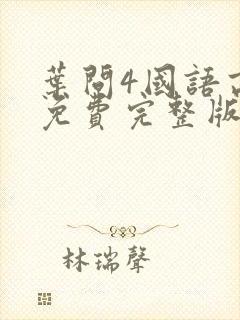 葉問4國語
免費完整版
林瑞聲